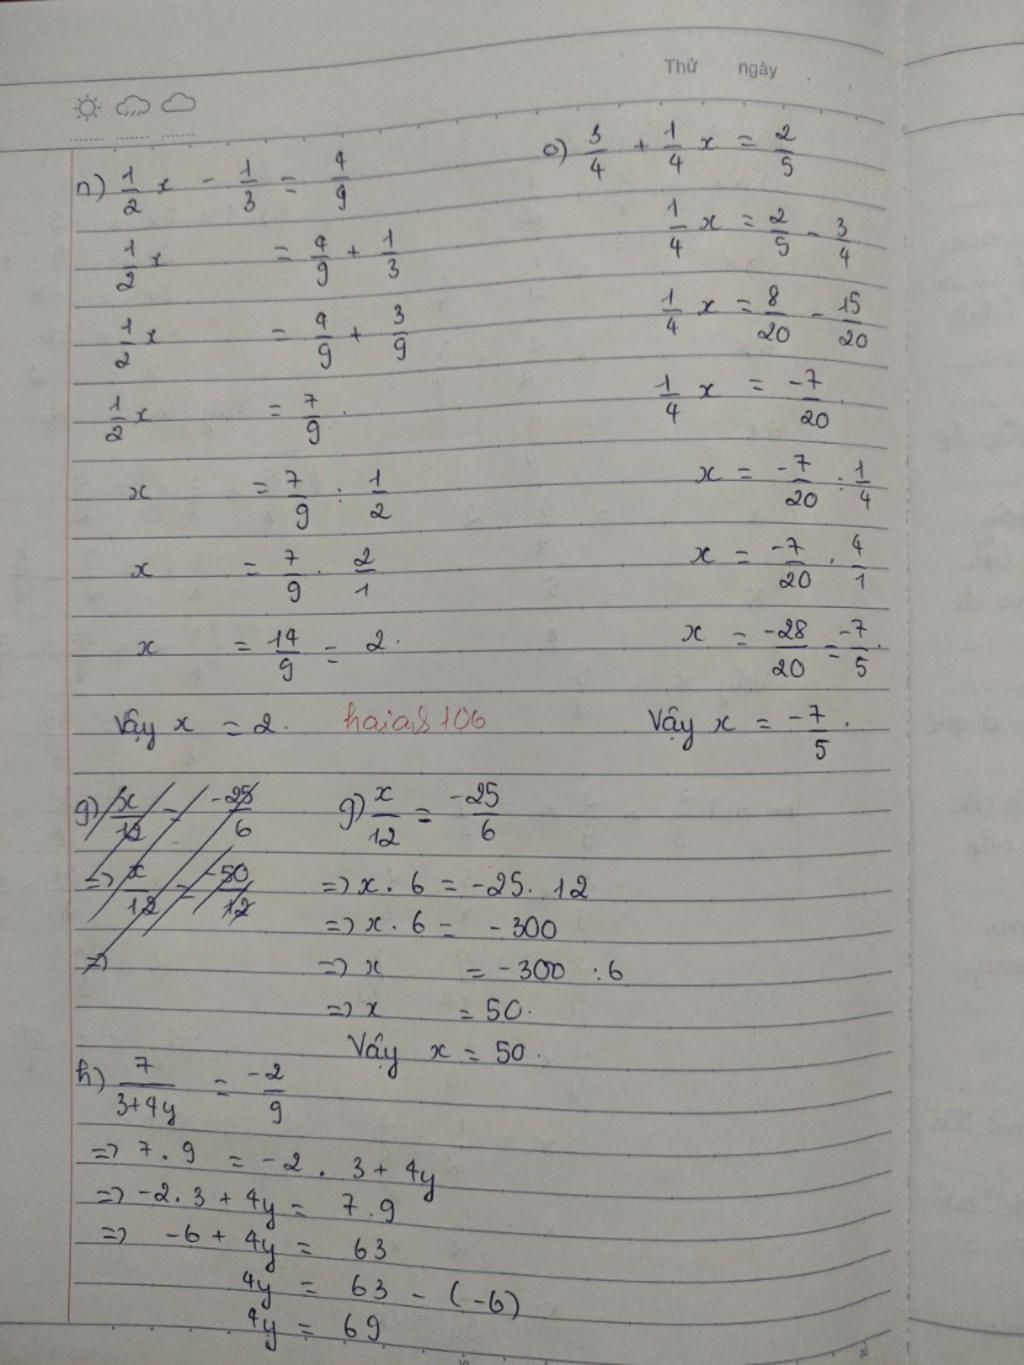 Thứ ngày
n) 1/2 x - 1/3 = 4/9
1/2 x = 4/9 + 1/3
1/2 x = 4/9 + 3/9
1/2 x = 7/9.
x = 7/9 : 1/2
x = 7/9 . 2/1
x = 14/9 = 2.
Vậy x = 2.
haias106
o) 3/4 + 1/4 x = 2/5
1/4 x = 2/5 - 3/4
1/4 x = 8/20 - 15/20
1/4 x = -7/20.
x = -7/20 : 1/4
x = -7/20 . 4/1
x = -28/20 = -7/5.
Vậy x = -7/5.
g) x/12 = -25/6
=> x/12 = -50/12
=>
g) x/12 = -25/6
=> x . 6 = -25 . 12
=> x . 6 = -300
=> x = -300 : 6
=> x = 50.
Vậy x = 50.
h) 7/3+4y = -2/9
=> 7 . 9 = -2 . 3 + 4y
=> -2 . 3 + 4y = 7 . 9
=> -6 + 4y = 63
4y = 63 - (-6)
4y = 69